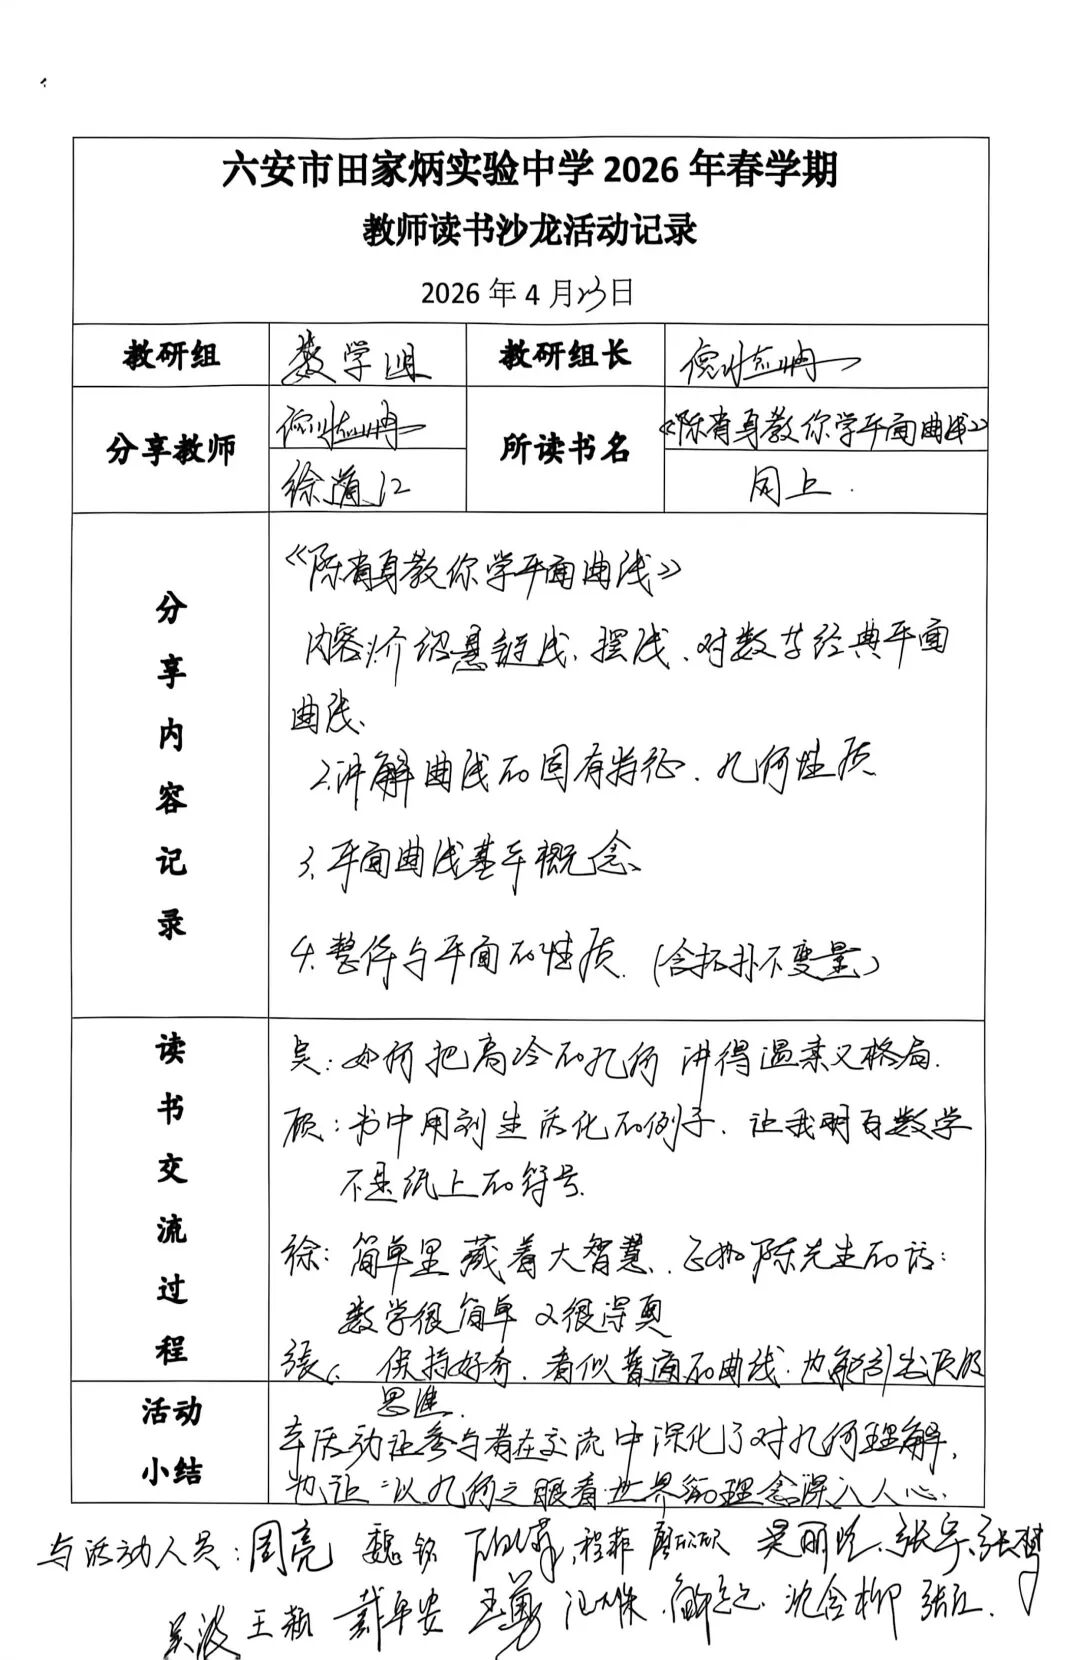 六安市田家炳实验中学2026年春学期
教师读书沙龙活动记录
2026年4月23日
教研组 数学组 教研组长
分享教师 所读书名 《陈省身教你学平面曲线》
徐 同上.
分享内容记录
《陈省身教你学平面曲线》
内容:介绍悬链线、摆线、对数等经典平面
曲线、
2.讲解曲线的固有特征、几何性质
3、平面曲线基本概念、
4.整体与平面的性质.(含拓扑不变量)
读书交流过程
吴:如何把高冷的几何讲得温柔又格局.
顾:书中用到生活化的例子、让我明白数学
不是纸上的符号.
徐:简单里藏着大智慧、正如陈先生的话:
数学很简单又很深奥
张: 保持好奇、看似普通的曲线、也能引出顶级
思维.
活动小结
本活动让参与者在交流中深化了对几何理解,
也让“以几何之眼看世界的理念深入人心.
与活动人员:周亮 魏铭 程菲 吴丽 张宇、张梦
吴波 王颖 戴平安 王勇 沈含柳 张红.